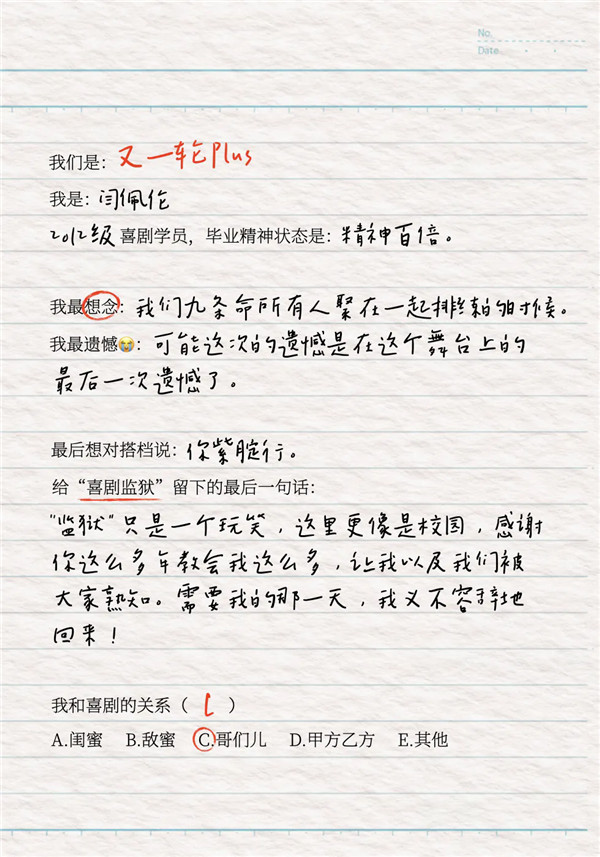 No.
Date
我们是：又一轮Plus
我是：闫佩伦
2012级喜剧学员，毕业精神状态是：精神百倍。
我最想念：我们九条命所有人聚在一起排练的时候。
我最遗憾😭：可能这次的遗憾是在这个舞台上的
最后一次遗憾了。
最后想对搭档说：你紫腚行。
给“喜剧监狱”留下的最后一句话：
“监狱”只是一个玩笑，这里更像是校园，感谢
你这么多年教会我这么多，让我以及我们被
大家熟知。需要我的那一天，我义不容辞地
回来！
我和喜剧的关系（ C ）
A.闺蜜 B.敌蜜 C.哥们儿 D.甲方乙方 E.其他